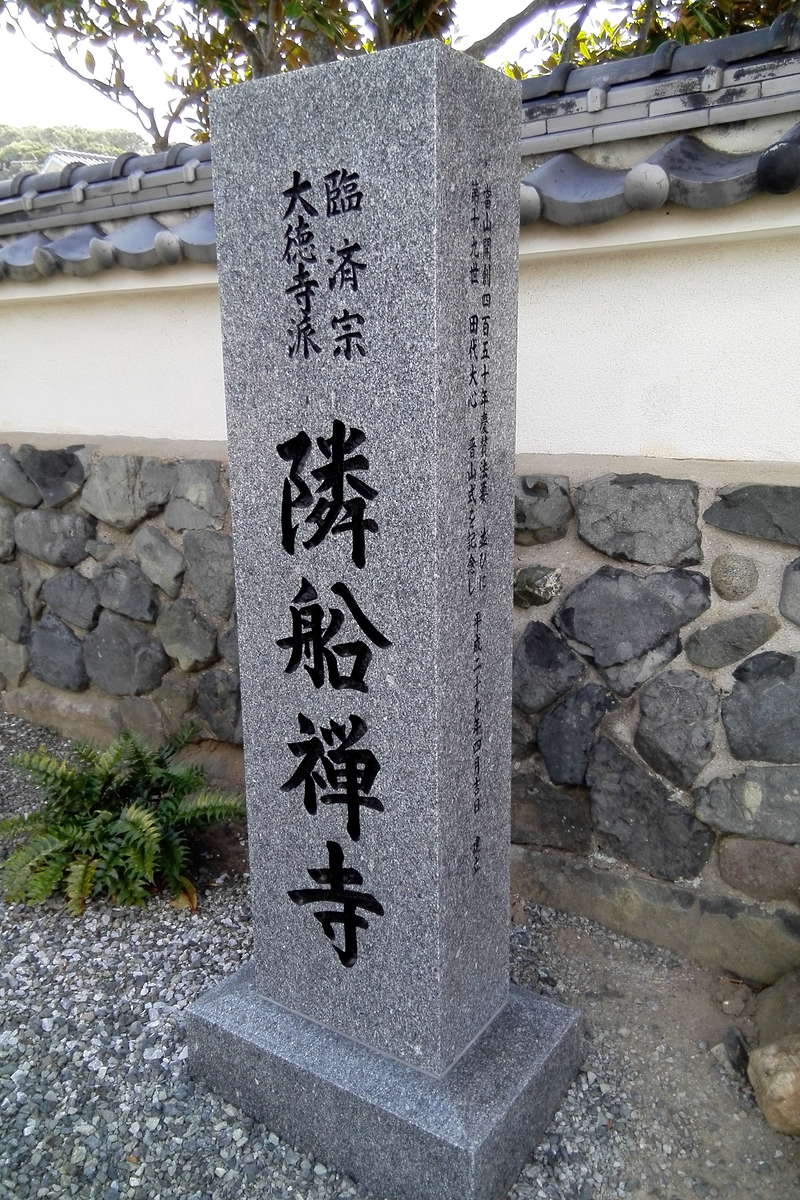 臨済宗
大徳寺派
隣船禅寺
當山開創四百五十年慶讃法要 並びに
第十九世 田代大心 晋山式を記念し 平成二十九年四月吉日 建立